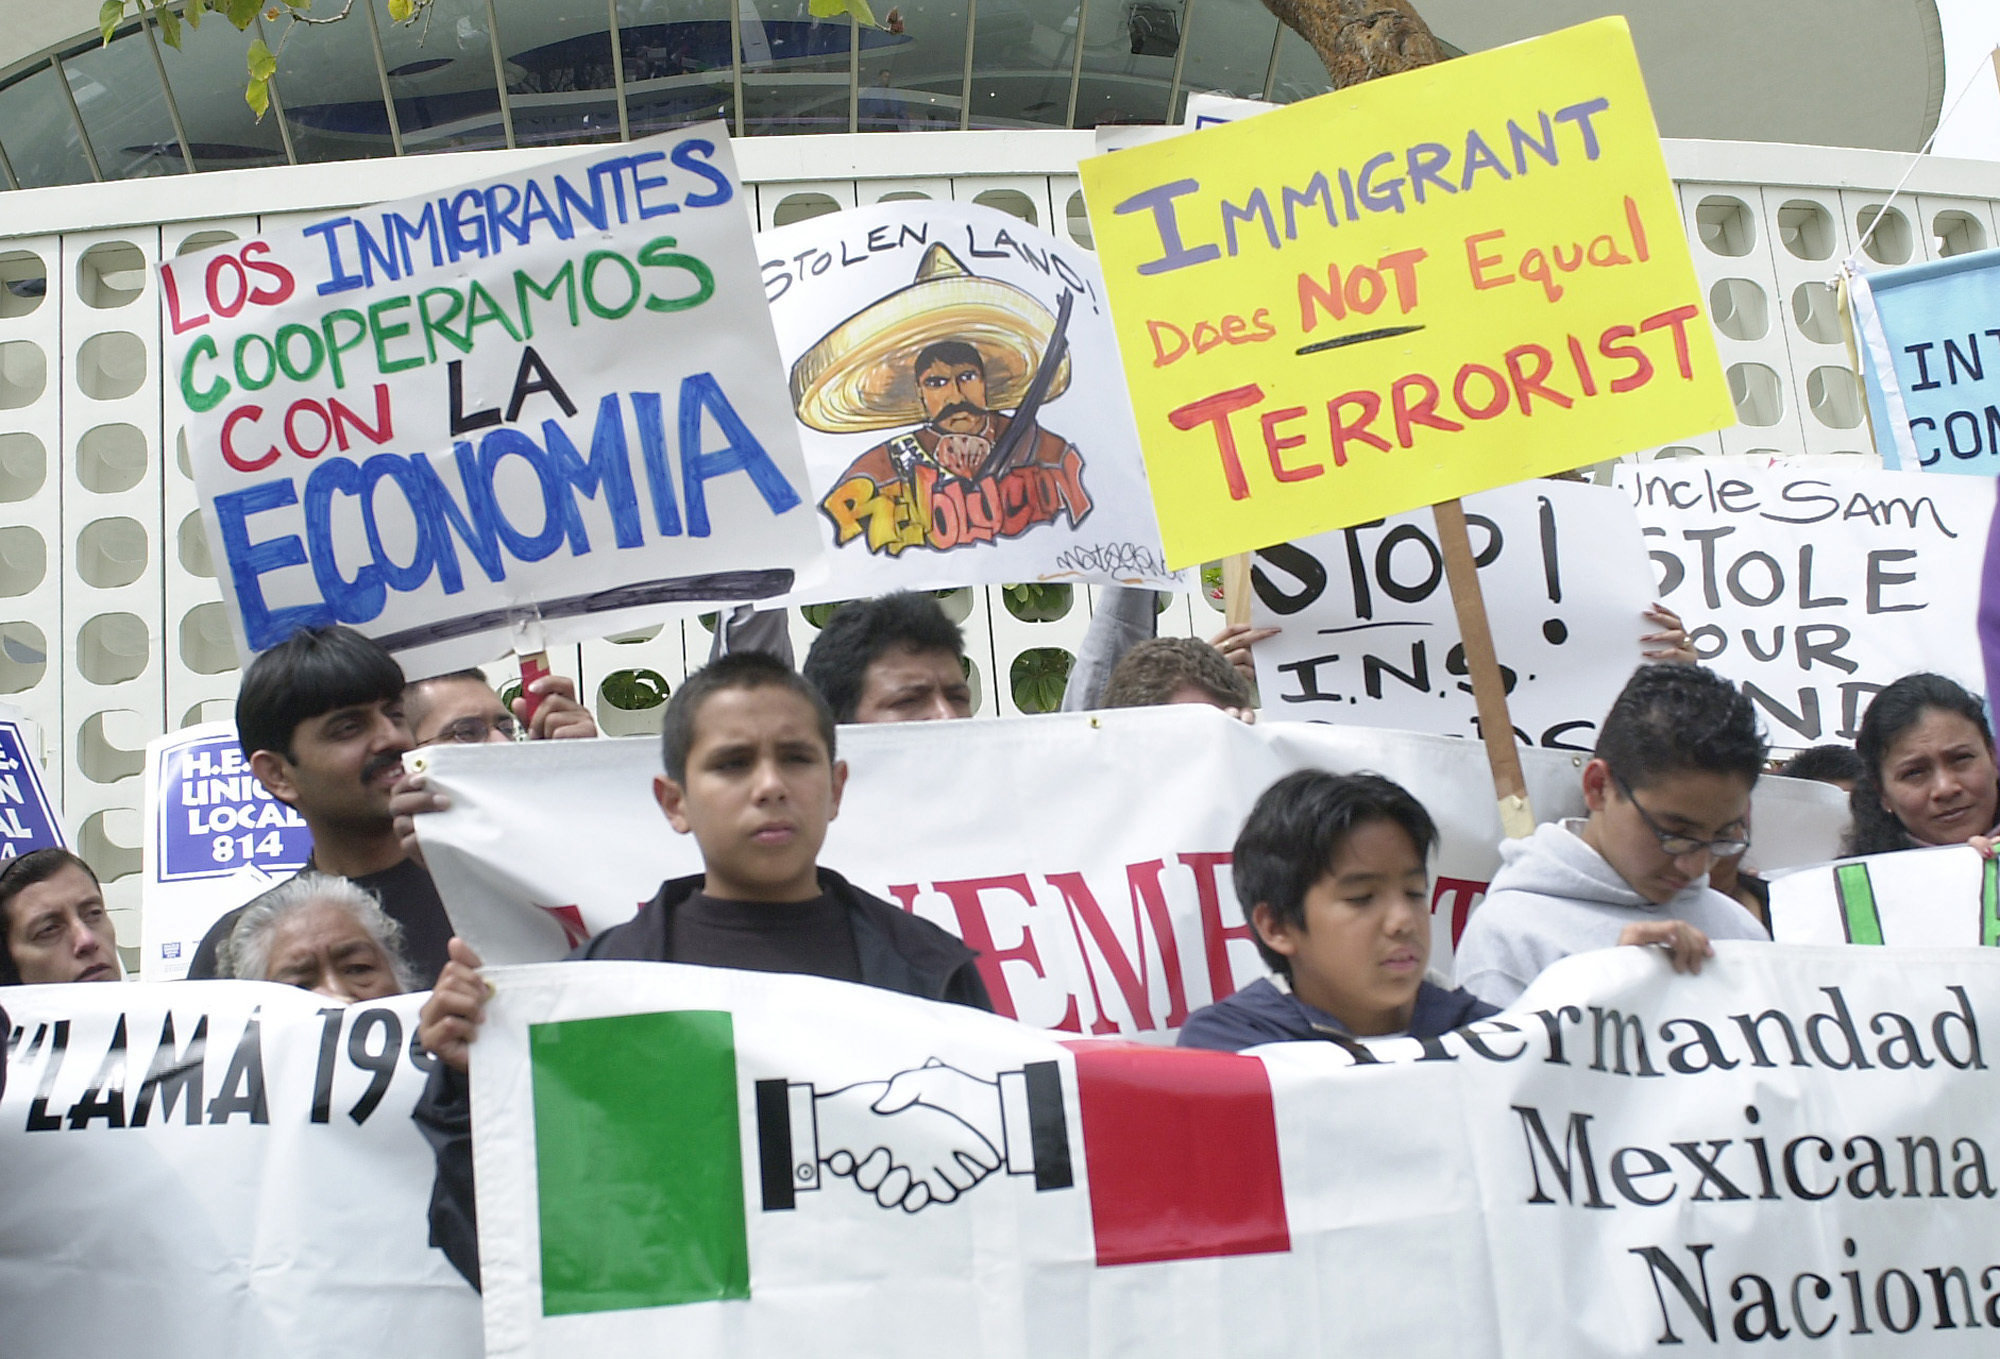 LOS INMIGRANTES
COOPERAMOS
CON LA
ECONOMIA
STOLEN LAND!
REVOLUCION
IMMIGRANT
Does NOT Equal
TERRORIST
STOP!
I.N.S.
Uncle SAM
STOLE
OUR
INT
CON
H.E.
UNIO
LOCAL
814
"LAMA 199
Hermandad
Mexicana
Naciona